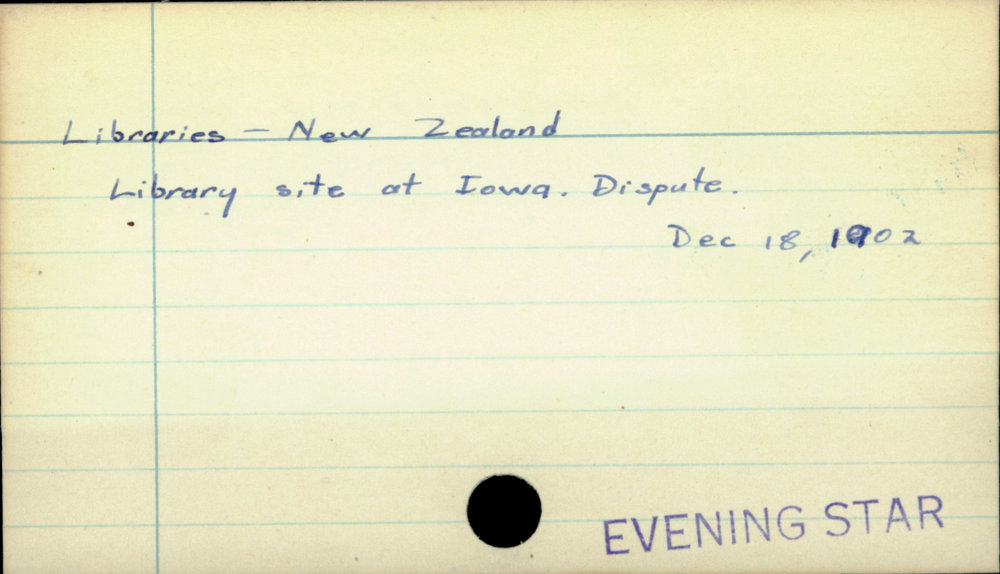 Libraries - New Zealand
Library site at Iowa. Dispute.
Dec 18, 1902
EVENING STAR